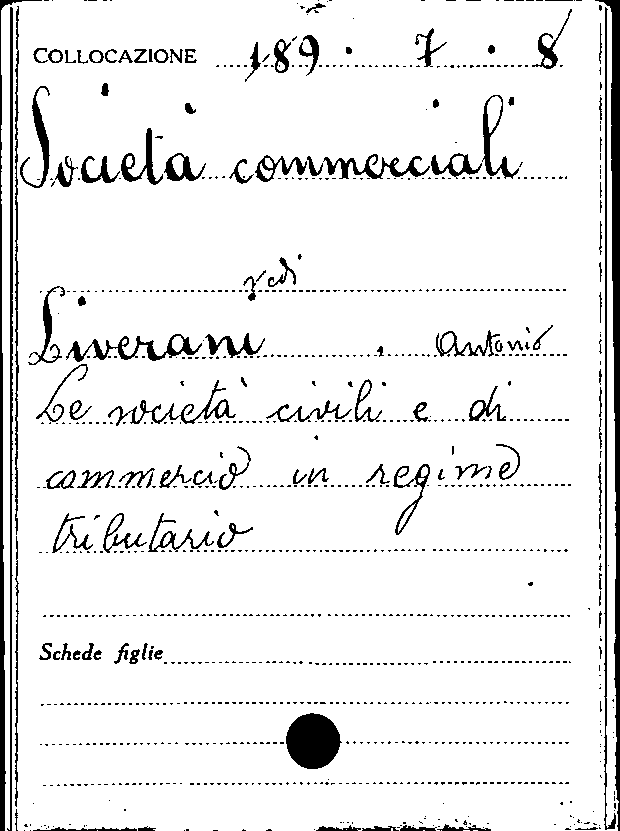 COLLOCAZIONE 189 · 7 · 8
Società commerciali
vedi
Liverani, Antonio
Le società civili e di
commercio in regime
tributario
Schede figlie